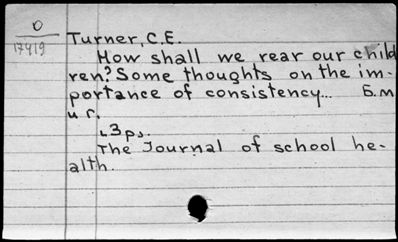 O
17419
Turner, C.E.
How shall we rear our child
ren? Some thoughts on the im-
portance of consistency... Б.м
и г.
3 ps.
The Journal of school he-
alth.